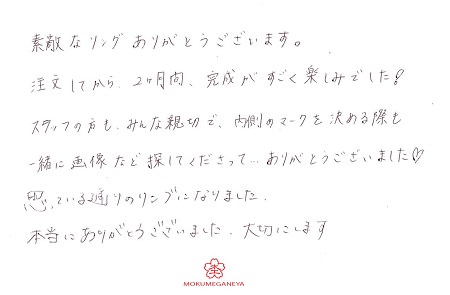 素敵なリングありがとうございます。
注文してから、2ヶ月間、完成がすごく楽しみでした!
スタッフの方も、みんな親切で、内側のマークを決める際も
一緒に画像など探してくださって…ありがとうございました♡
思っている通りのリングになりました.
本当にありがとうございました.大切にします
MOKUMEGANEYA